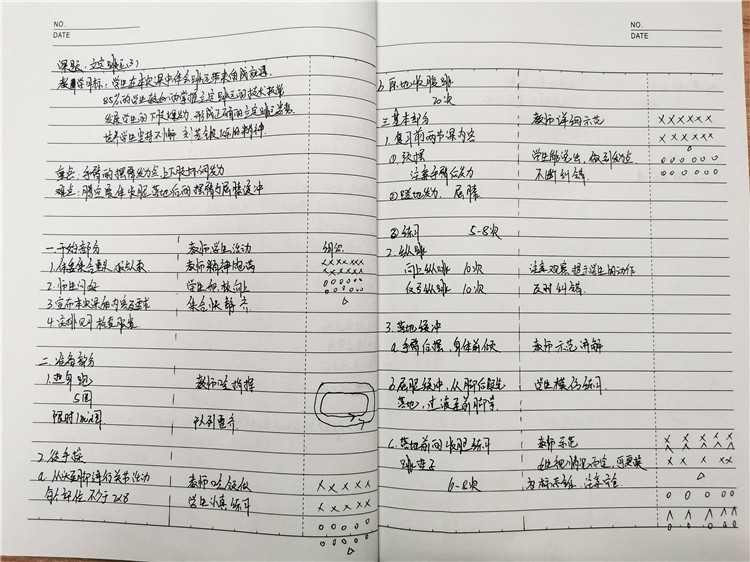 NO.
DATE
课题:立定跳远(3)
教学目标:学生在本次课中体会跳远带来的成就感
85%的学生能够初步掌握立定跳远的技术技能
发展学生的下肢爆发力,形成正确的立定跳远姿势
培养学生坚持不懈 刻苦锻炼的精神
重点:手臂的摆臂发力点上下肢协调发力
难点:腾空展体收腿,落地后的摆臂与屈膝缓冲
一.开始部分 教师学生活动 组织
1.体委集合整队 报告人数 教师精神饱满
2.师生问好 学生积极向上
3.宣布本次课内容及要求 集合快静齐
4.安排见习 检查服装
二.准备部分
1.热身跑 教师口令指挥
5圈
限时1min/圈 队列整齐
2.徒手操
a.从头至脚进行关节活动 教师口令领做
每个部位不少于2x8 学生认真练习
NO.
DATE
b.原地收腹跳
20次
三.基本部分 教师详细示范
1.复习前两节课内容
①预摆 学生能说出,做到动作
注意手臂后发力 不断纠错
②蹬地发力,屈膝
③练习 5-8次
2.纵跳
向上纵跳 10次 注意观察,提示学生的动作
反弓纵跳 10次 及时纠错
3.落地缓冲
a.手臂后摆,身体前倾 教师示范讲解
b.屈膝缓冲,从脚后跟先 学生模仿练习
落地,过渡至前脚掌
c.落地前向收腿练习 教师示范
跳垫子
6-8次 注意安全